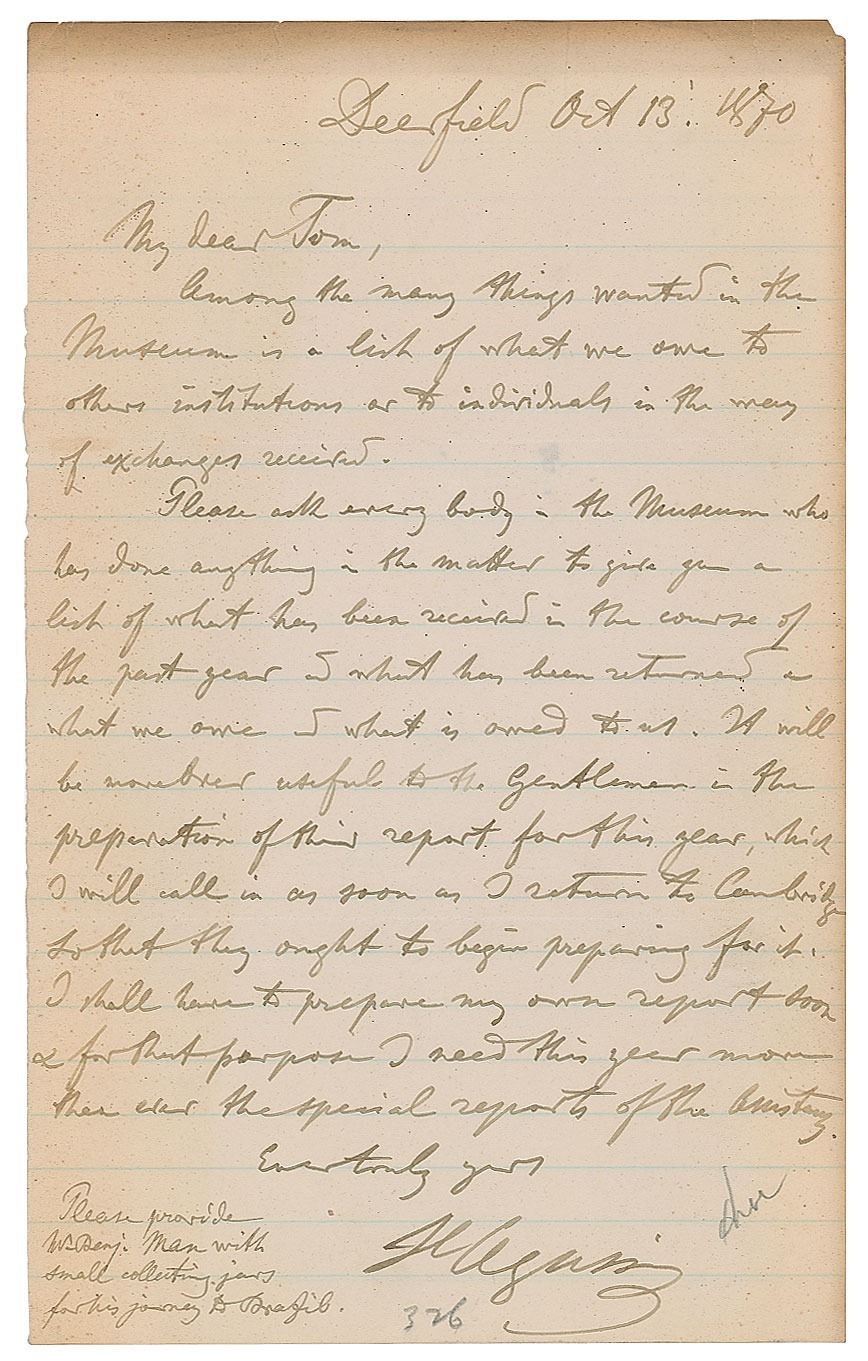 Deerfield Oct 13. 1870
My dear Tom,
Among the many things wanted in the
Museum is a list of what we owe to
others institutions or to individuals in the way
of exchanges received.
Please ask every body in the Museum who
has done anything in the matter to give you a
list of what has been received in the course of
the past year and what has been returned or
what we owe and what is owed to us. It will
be moreover useful to the Gentlemen in the
preparation of their report for this year, which
I will call in as soon as I return to Cambridge
so that they ought to begin preparing for it.
I shall have to prepare my own report soon
& for that purpose I need this year more
than ever the special reports of the
Ever truly yours
L Agassiz
Please provide
Mr Benj. Man with
small collecting jars
for his journey to Brazil.
326